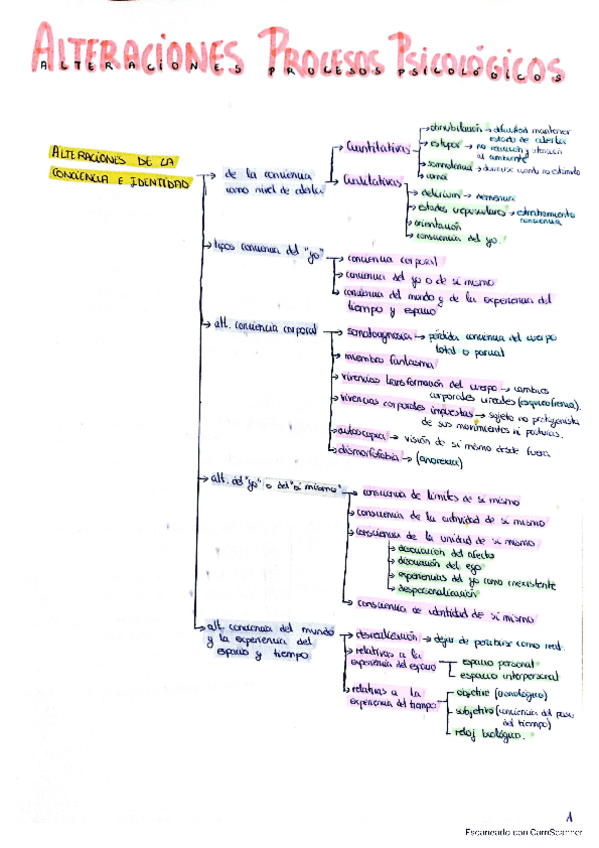 ALTERACIONES PROCESOS PSICOLÓGICOS
ALTERACIONES PROCESOS PSICOLÓGICOS
ALTERACIONES DE LA
CONCIENCIA E IDENTIDAD
de la conciencia
como nivel de alerta
Cuantitativas
obnubilación → dificultad mantener
estado de alerta
estupor → no reacción y atención
al ambiente
somnolencia → duerme cuando no estímulo
coma
Cualitativas
delirium → demencia
estados crepusculares → estrechamiento
conciencia
orientación
consciencia del yo.
tipos conciencia del "yo"
conciencia corporal
conciencia del yo o de sí mismo
conciencia del mundo y de la experiencia del
tiempo y espacio
alt. conciencia corporal
somatoagnosia → pérdida conciencia del cuerpo
total o parcial
miembro fantasma
vivencias transformación del cuerpo → cambios
corporales irreales (esquizofrenia).
vivencias corporales impuestas → sujeto no protagonista
de sus movimientos ni posturas.
autoscopia → visión de sí mismo desde fuera
dismorfofobia → (anorexia)
alt. del "yo" o del "sí mismo"
consciencia de límites de sí mismo
consciencia de la actividad de sí mismo
consciencia de la unidad de sí mismo
disociación del afecto
disociación del ego
experiencias del yo como inexistente
despersonalización
consciencia de identidad de sí mismo
alt. conciencia del mundo
y la experiencia del
espacio y tiempo
desrealización → dejar de percibirse como real.
relativas a la
experiencia del espacio
espacio personal
espacio interpersonal
relativas a la
experiencia del tiempo
objetivo (cronológico)
subjetivo (conciencia del paso
del tiempo)
reloj biológico.
1
Escaneado con CamScanner